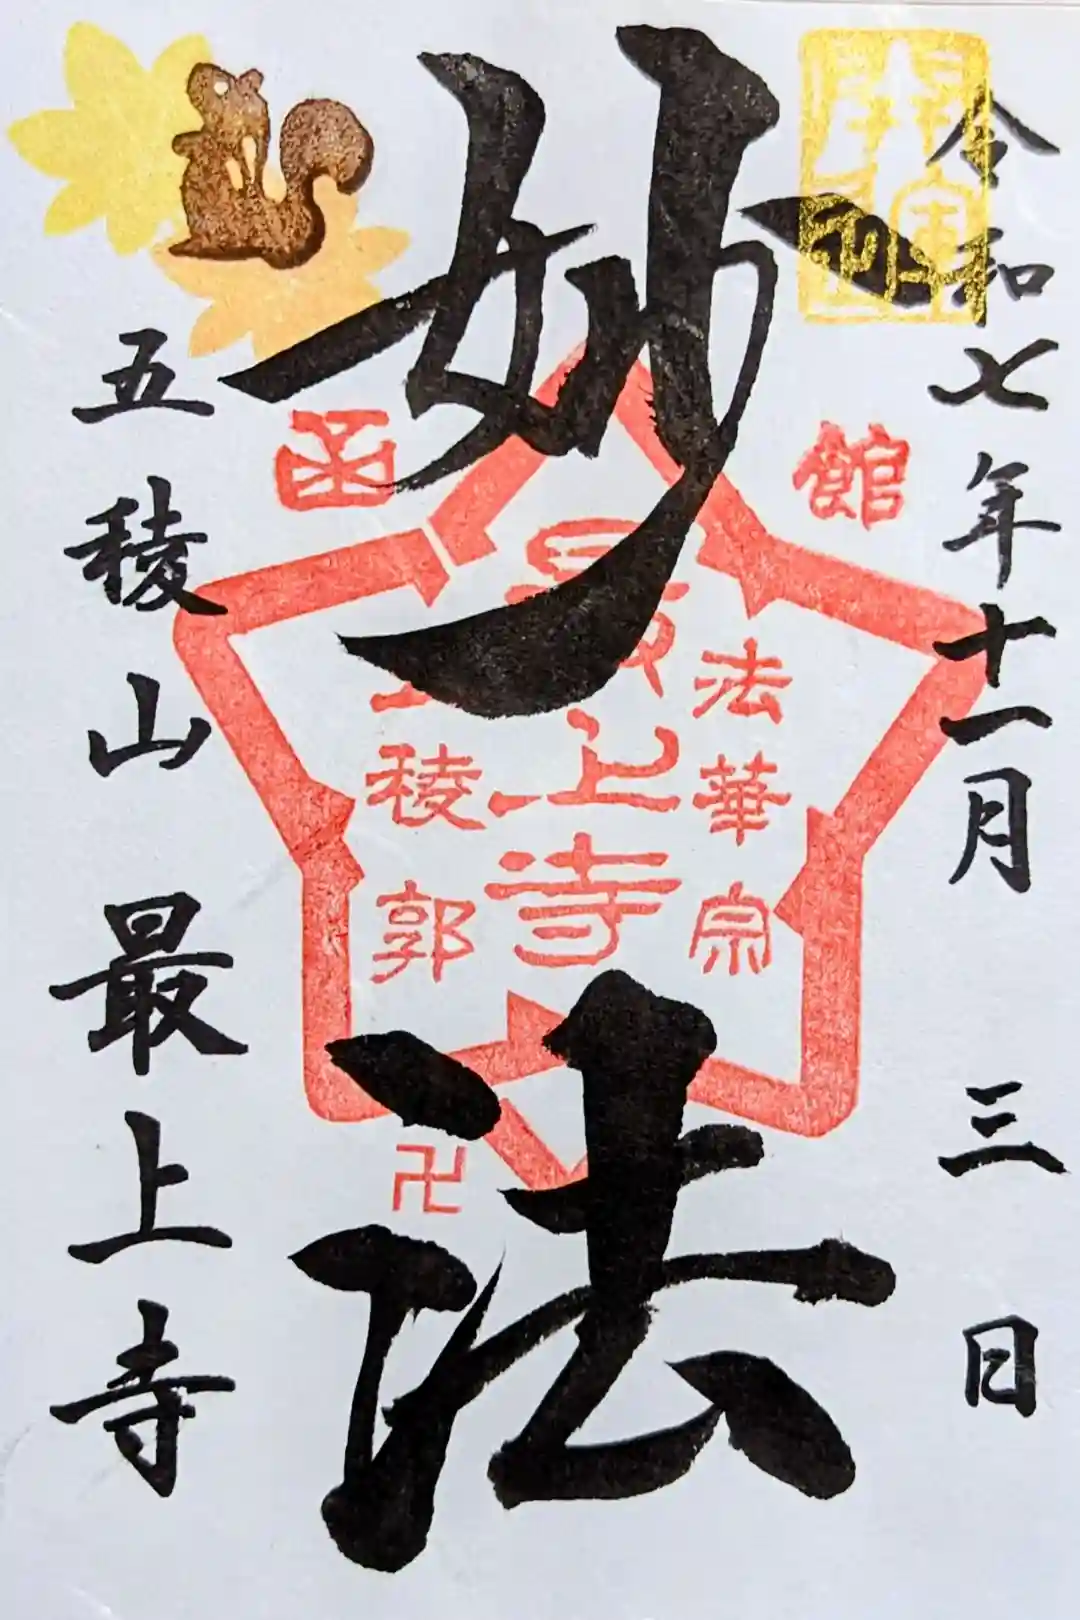 令和七年十一月三日
妙法
五稜山最上寺
函館
法華宗
最上寺
五稜郭
卍